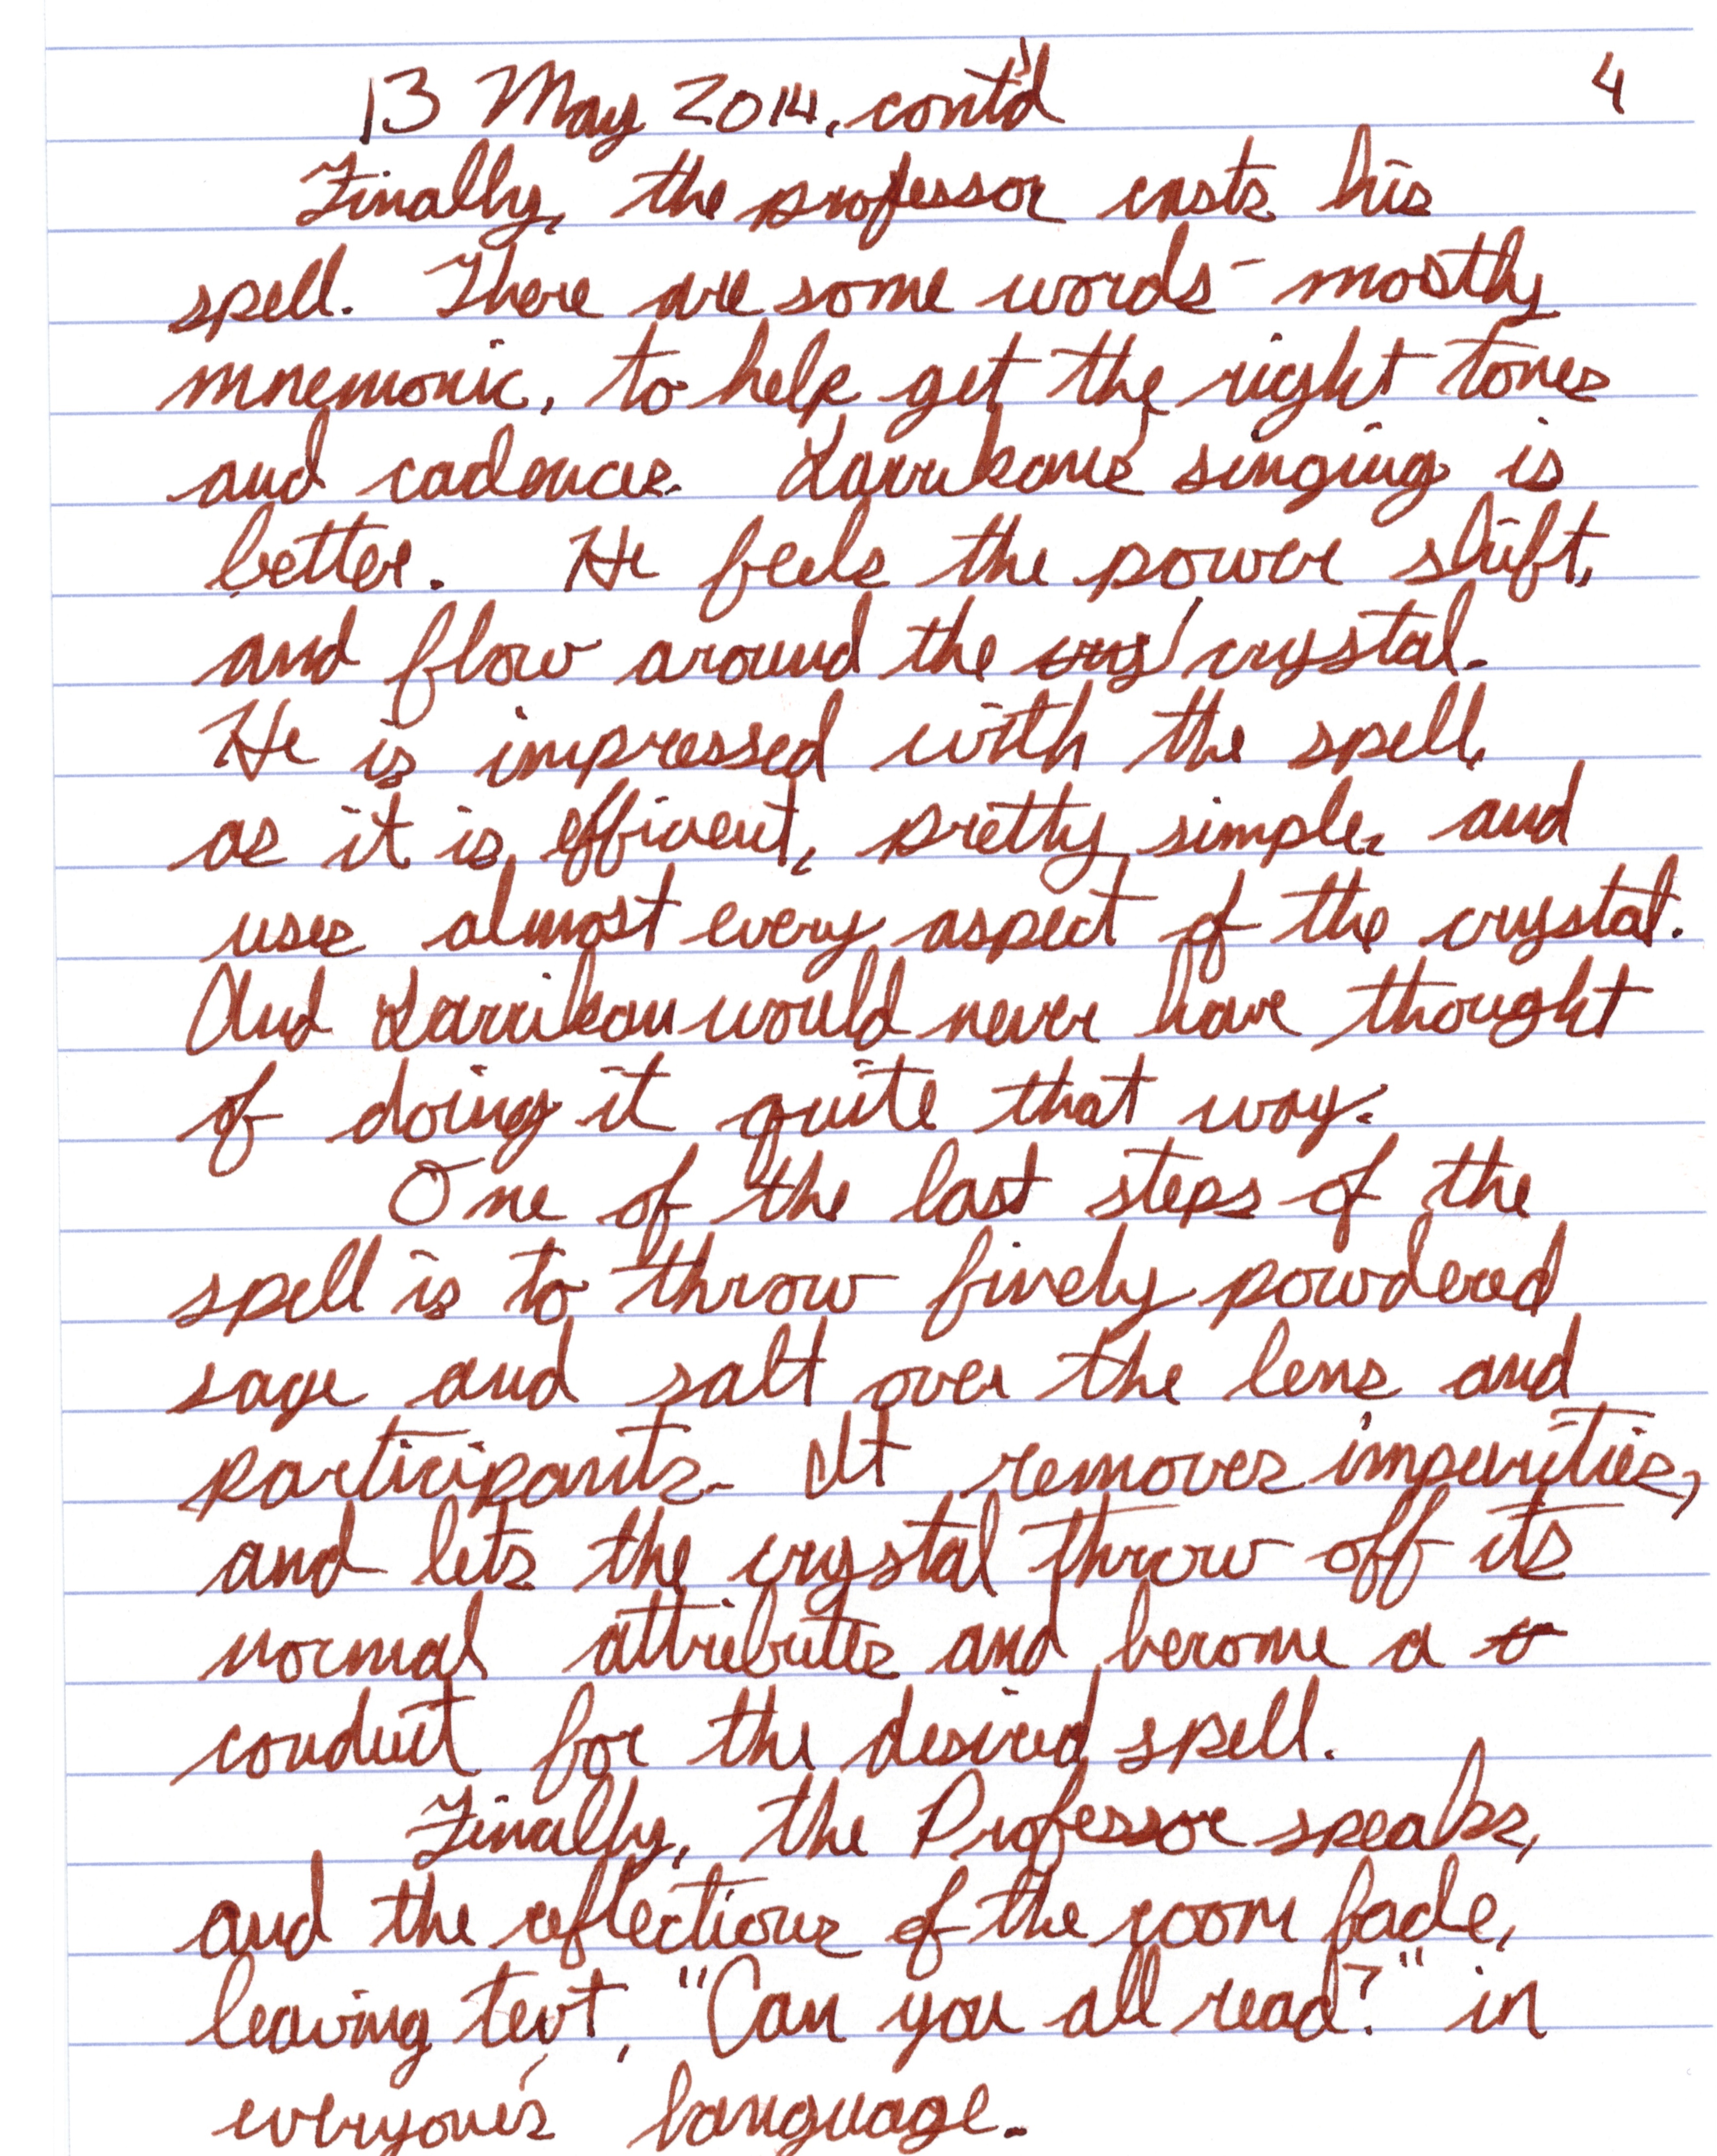 13 May 2014, cont'd 4
Finally, the professor casts his
spell. There are some words - mostly
mnemonic, to help get the right tones
and cadences. Larrikan's singing is
better. He feels the power shift,
and flow around the crys/ crystal.
He is impressed with the spell,
as it is efficient, pretty simple, and
uses almost every aspect of the crystal.
And Larrikan would never have thought
of doing it quite that way.
One of the last steps of the
spell is to throw finely powdered
sage and salt over the lens and
participants. It removes impurities,
and lets the crystal throw off its
normal attributes and become a
conduit for the desired spell.
Finally, the Professor speaks,
and the reflections of the room fade,
leaving text, "Can you all read?" in
everyone's language.